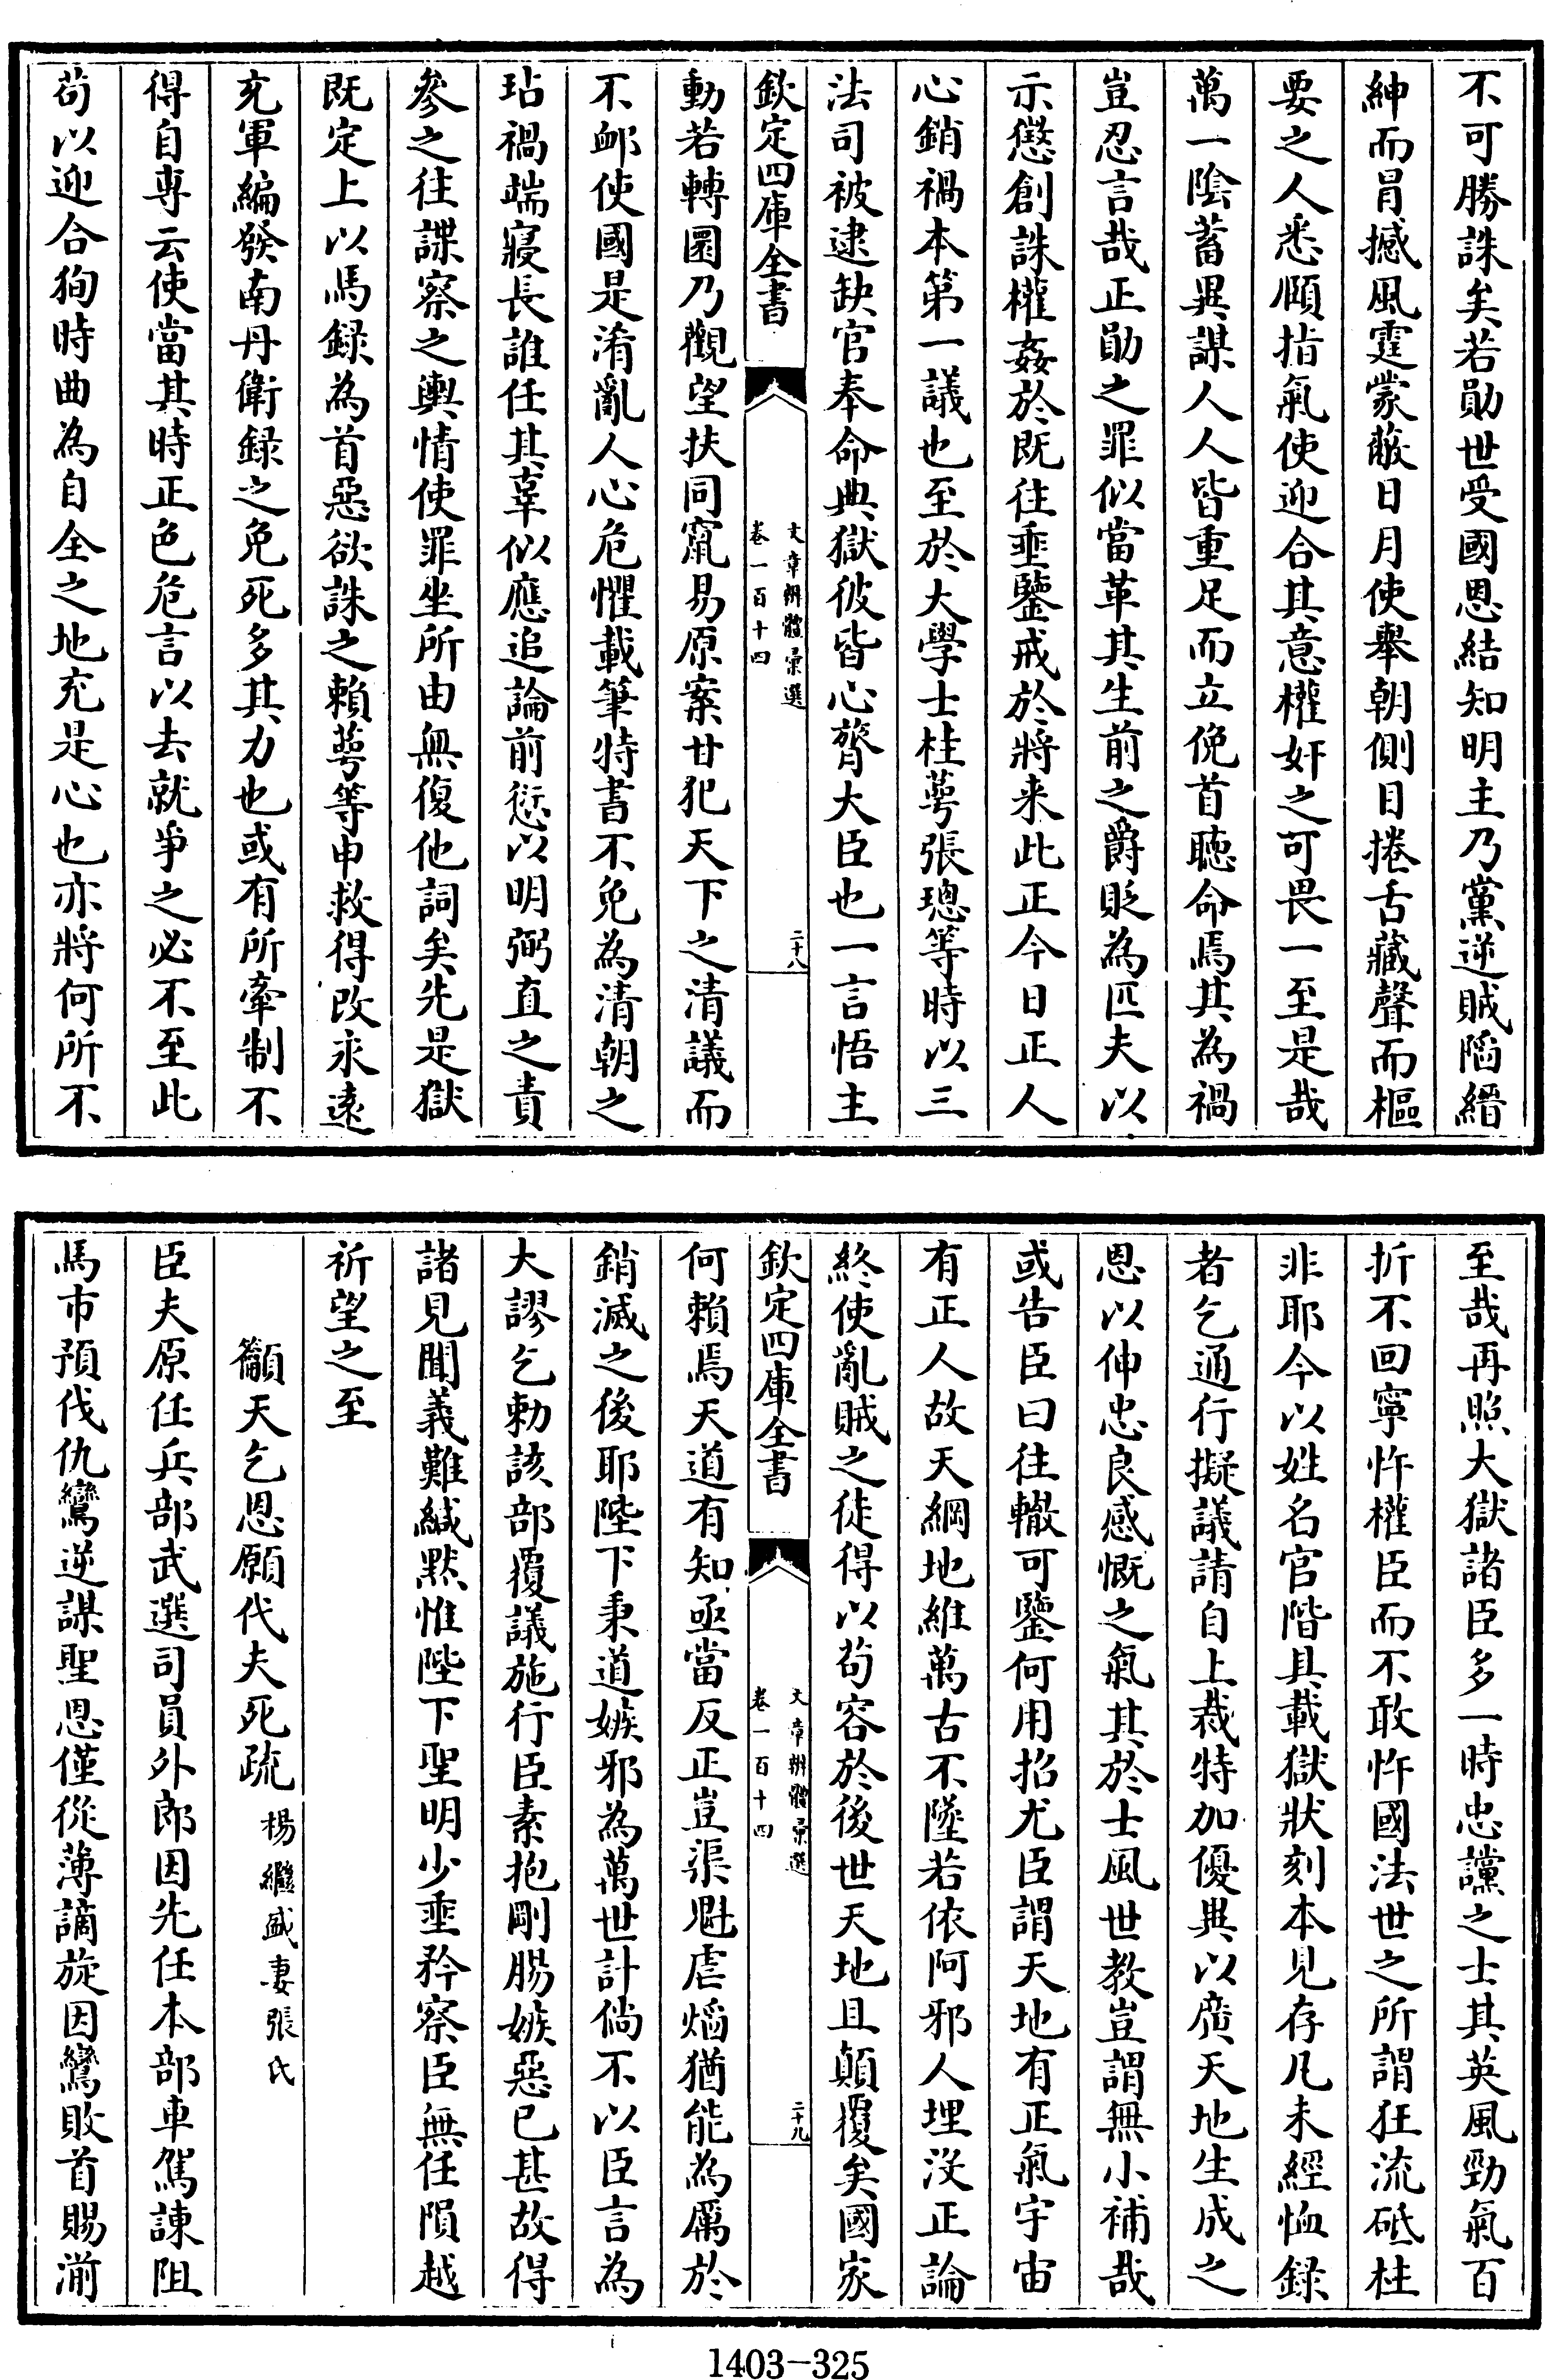 不可勝誅矣若勛世受國恩結知明主乃黨逆賊陷縉
紳而冐撼風霆蒙蔽日月使舉朝側目捲舌藏聲而樞
要之人悉順指氣使迎合其意權奸之可畏一至是哉
萬一陰蓄異謀人人皆重足而立俛首聽命焉其為禍
豈忍言哉正勛之罪似當革其生前之爵貶為匹夫以
示懲創誅權姦於既往垂鑒戒於將来此正今日正人
心銷禍本第一議也至於大學士桂萼張璁等時以三
法司被逮缺官奉命典獄彼皆心膂大臣也一言悟主
欽定四庫全書
文章辨體彚選
卷一百十四
二十八
動若轉圜乃觀望扶同竄易原案甘犯天下之清議而
不䘏使國是淆亂人心危懼載筆特書不免為清朝之
玷禍端寢長誰任其辜似應追論前愆以明弼直之責
參之往諜察之輿情使罪坐所由無復他詞矣先是獄
既定上以馬録為首惡欲誅之賴萼等申救得改永遠
充軍編發南丹衛録之免死多其力也或有所牽制不
得自專云使當其時正色危言以去就爭之必不至此
苟以迎合狥時曲為自全之地充是心也亦將何所不
至哉再照大獄諸臣多一時忠讜之士其英風勁氣百
折不回寧忤權臣而不敢忤國法世之所謂狂流砥柱
非耶今以姓名官階具載獄狀刻本見存凡未經恤録
者乞通行擬議請自上裁特加優典以廣天地生成之
恩以伸忠良感慨之氣其於士風世教豈謂無小補哉
或告臣曰往轍可鑒何用招尤臣謂天地有正氣宇宙
有正人故天綱地維萬古不墜若依阿邪人埋沒正論
終使亂賊之徒得以苟容於後世天地且顛覆矣國家
欽定四庫全書
文章辨體彚選
卷一百十四
二十九
何賴焉天道有知亟當反正豈渠魁虐熖猶能為厲於
銷滅之後耶陛下秉道嫉邪為萬世計倘不以臣言為
大謬乞勅該部覆議施行臣素抱剛腸嫉惡已甚故得
諸見聞義難緘默惟陛下聖明少垂矜察臣無任隕越
祈望之至
籲天乞恩願代夫死疏 楊繼盛妻張氏
臣夫原任兵部武選司員外郎因先任本部車駕諌阻
馬市預伐仇鸞逆謀聖恩僅從薄謫旋因鸞敗首賜湔
1403-325